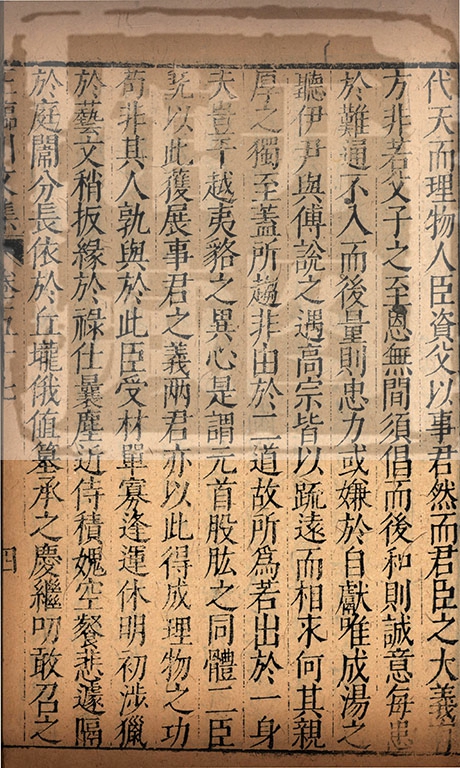 代天而理物人臣資父以事君然而君臣之大義
方非若父子之至恩無間須倡而後和則誠意每患
於難通不入而後量則忠力或嫌於自獻唯成湯之
聽伊尹與傅說之遇高宗皆以疏遠而相求何其親
厚之獨至蓋所趨非由於二道故所為若出於一身
夫豈干越夷貉之異心是謂元首股肱之同體二臣
以此獲展事君之義兩君亦以此得成理物之功
苟非其人孰與於此臣受材單寡逢運休明初涉獵
於藝文稍扳緣於祿仕曩塵近侍積媿空餐悲遽隔
於庭闈分長依於丘壠俄值纂承之慶繼叨敢召之
臨川文集 卷五十七 四